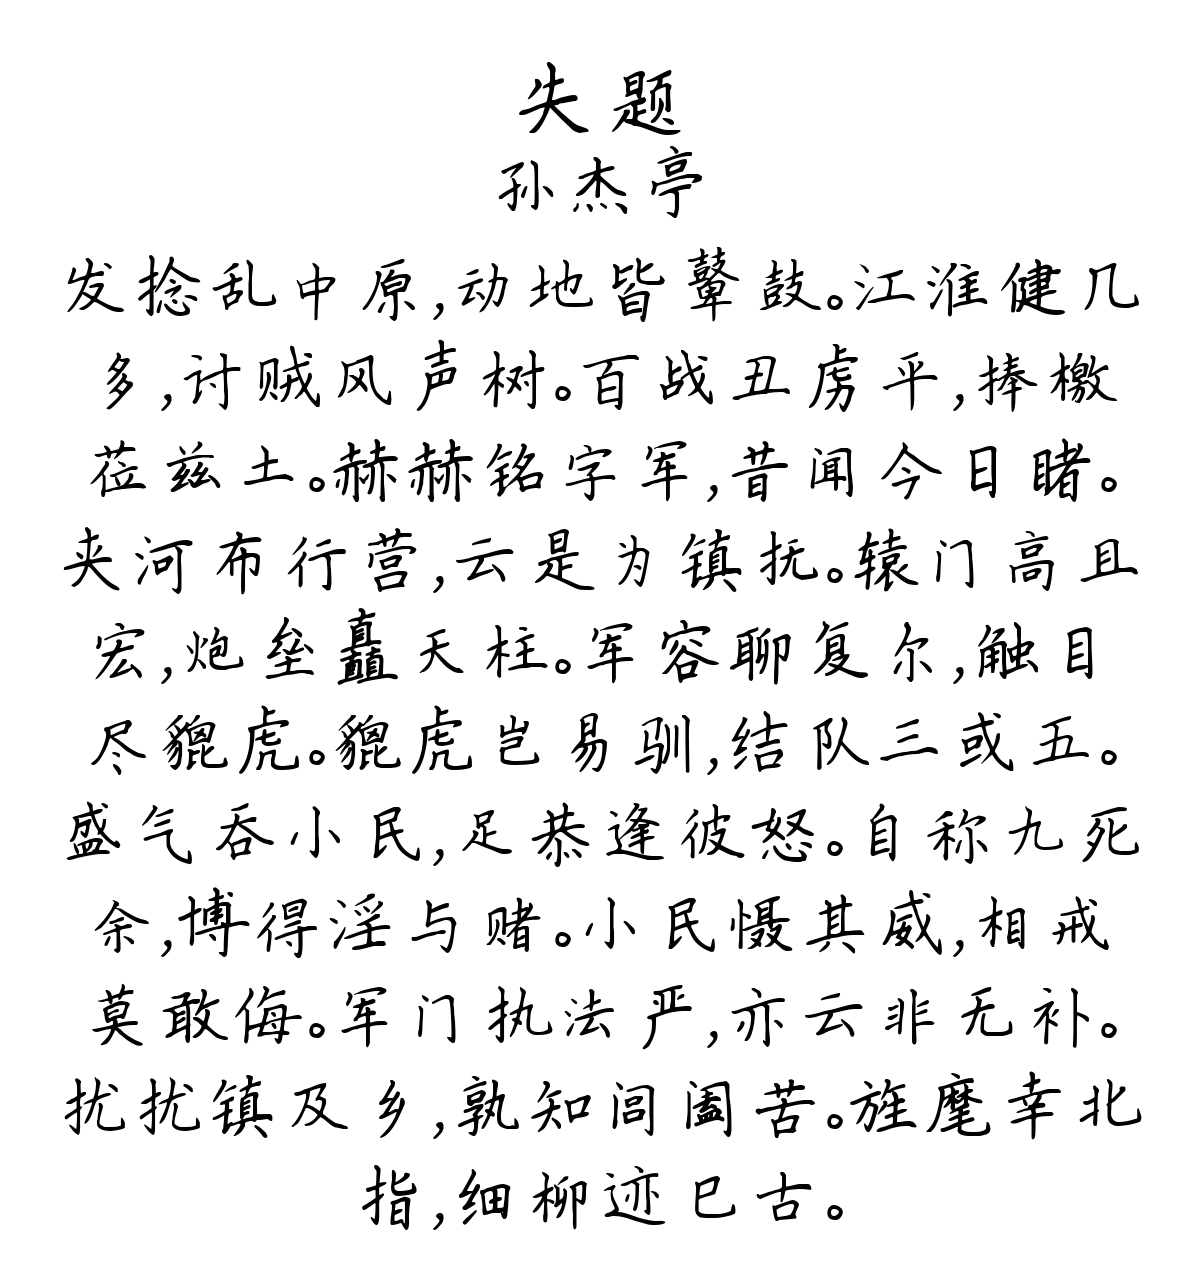 失题
孙杰亭
发捻乱中原,动地皆鼙鼓。江淮健几
多,讨贼风声树。百战丑虏平,捧檄
莅兹土。赫赫铭字军,昔闻今日睹。
夹河布行营,云是为镇抚。辕门高且
宏,炮垒矗天柱。军容聊复尔,触目
尽貔虎。貔虎岂易驯,结队三或五。
盛气吞小民,足恭逢彼怒。自称九死
余,博得淫与赌。小民慑其威,相戒
莫敢侮。军门执法严,亦云非无补。
扰扰镇及乡,孰知闾阖苦。旌麾幸北
指,细柳迹已古。